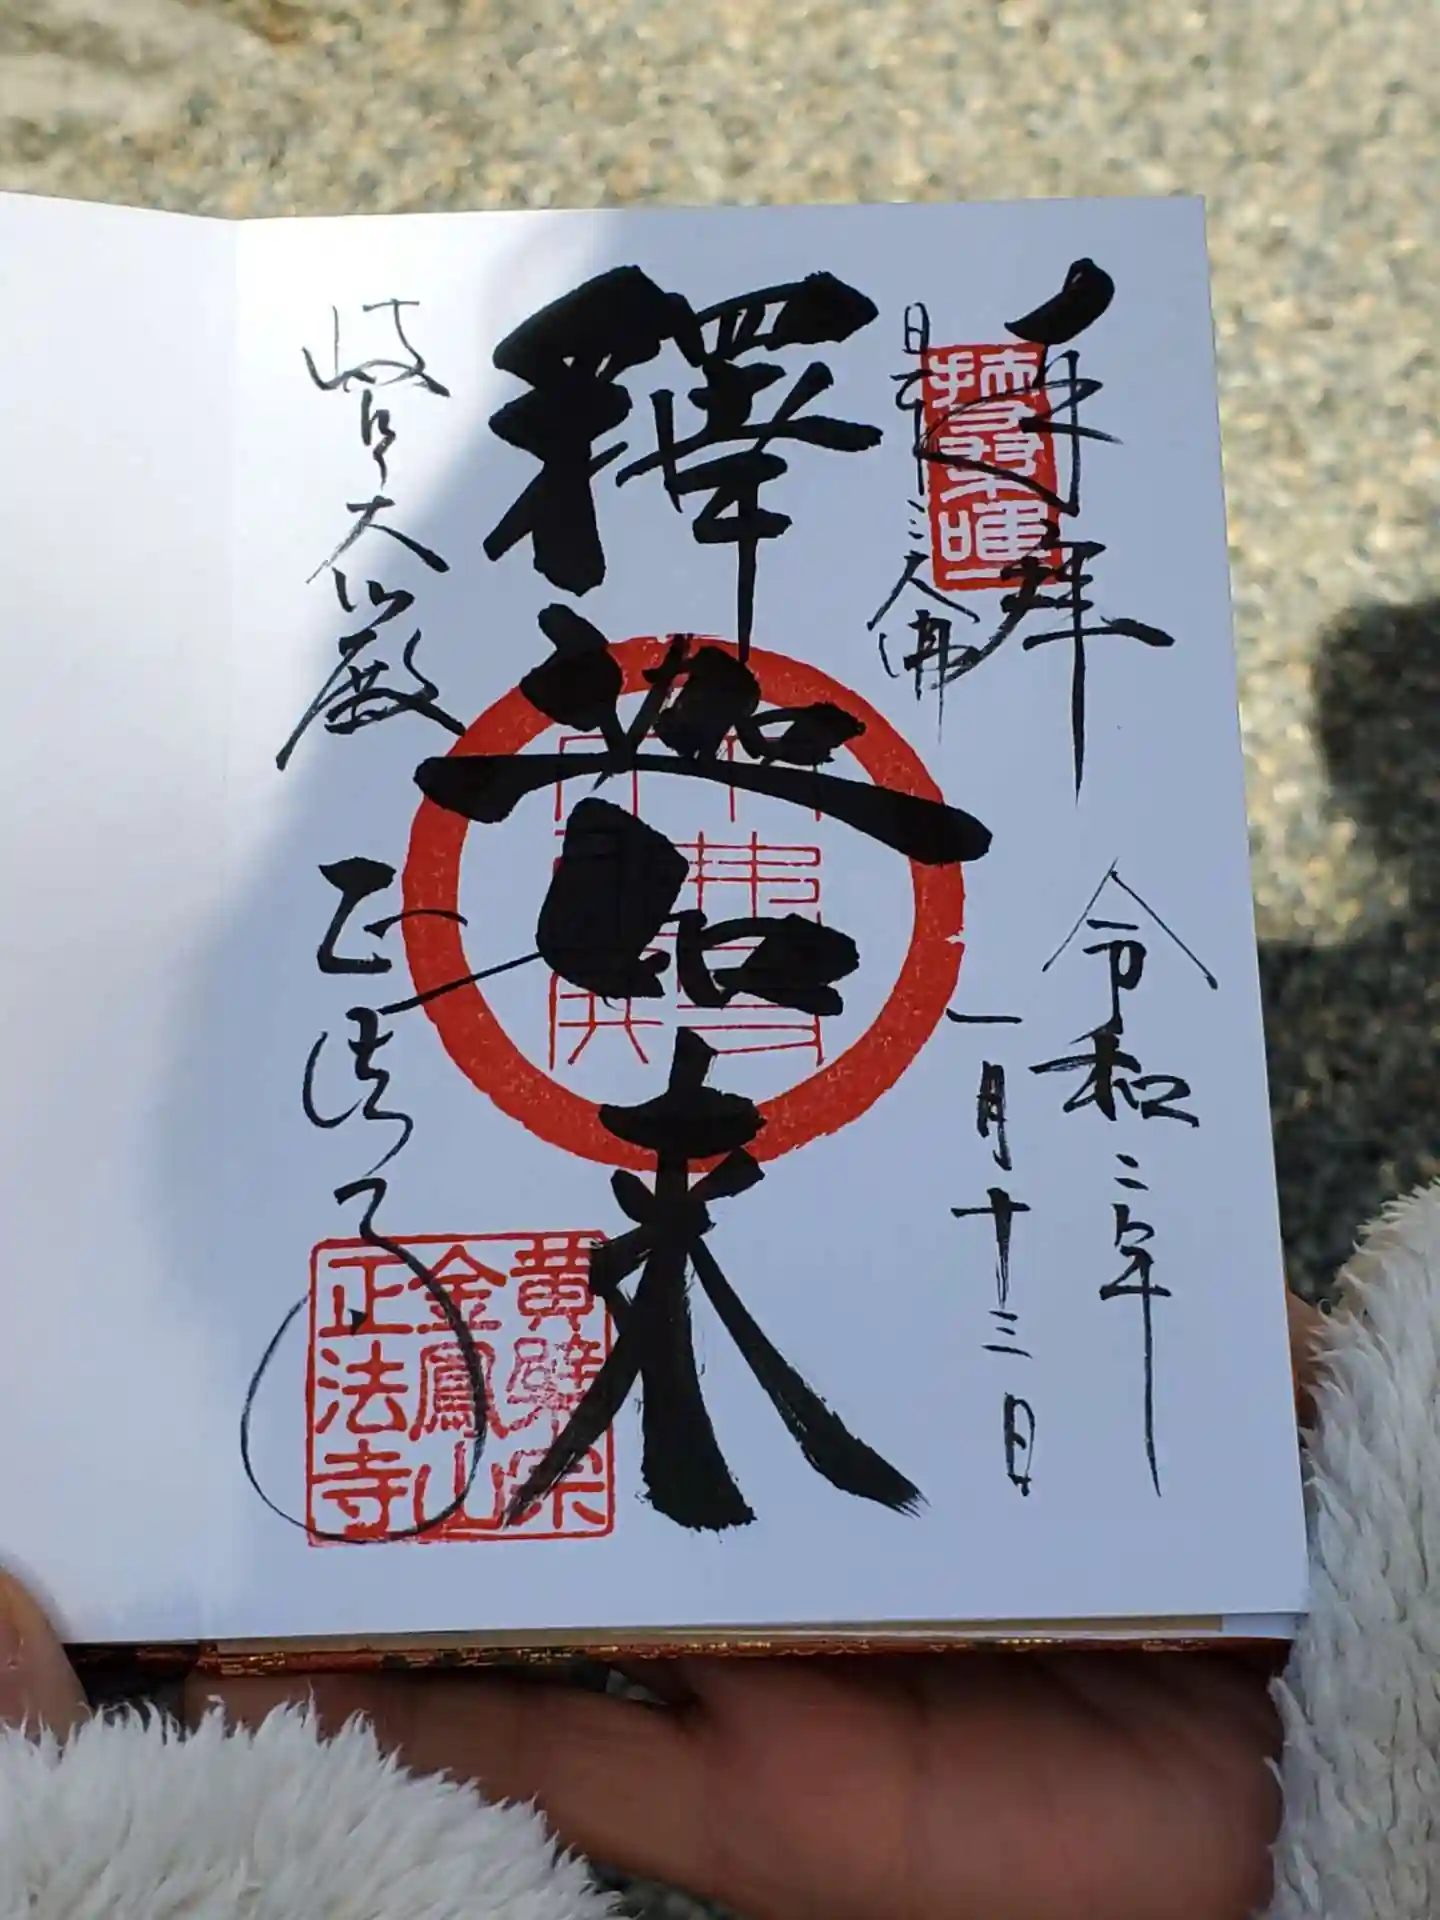 奉拝
令和二年
一月十三日
日本三大佛
釋迦如来
岐阜大仏殿
正法寺
黄檗宗
金鳳山
正法寺